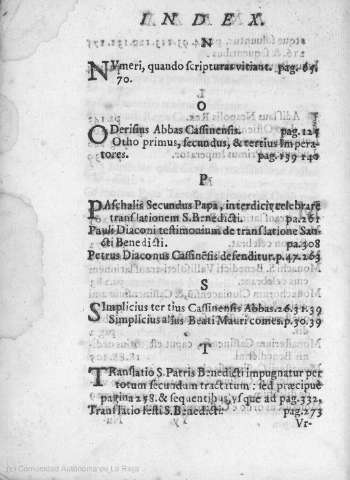 INDEX.
N
NVmeri, quando scripturas vitiant. pag. 65.
70.
O
ODerisius Abbas Cassinensis. pag. 125
Otho primus, secundus, & tertius Impera-
tores. pag. 139 140
P
PAschalis Secundus Papa, interdicit celebrare
translationem S. Benedicti. pa. 261
Pauli Diaconi testimonium de translatione San-
cti Benedicti. pa. 308
Petrus Diaconus Cassinēsis defenditur. p. 47. 263
S
SImplicius tertius Cassinensis Abbas. 26. 31. 39
Simplicius alius Beati Mauri comes. p. 30. 39
T
TRanslatio S. Patris Benedicti impugnatur per
totum secundum tractatum: sed præcipuè
pagina 258. & sequentibus, vsque ad pag. 332,
Translatio festi S. Benedicti. pag. 273
Vr-
(c) Comunidad Autónoma de La Rioja